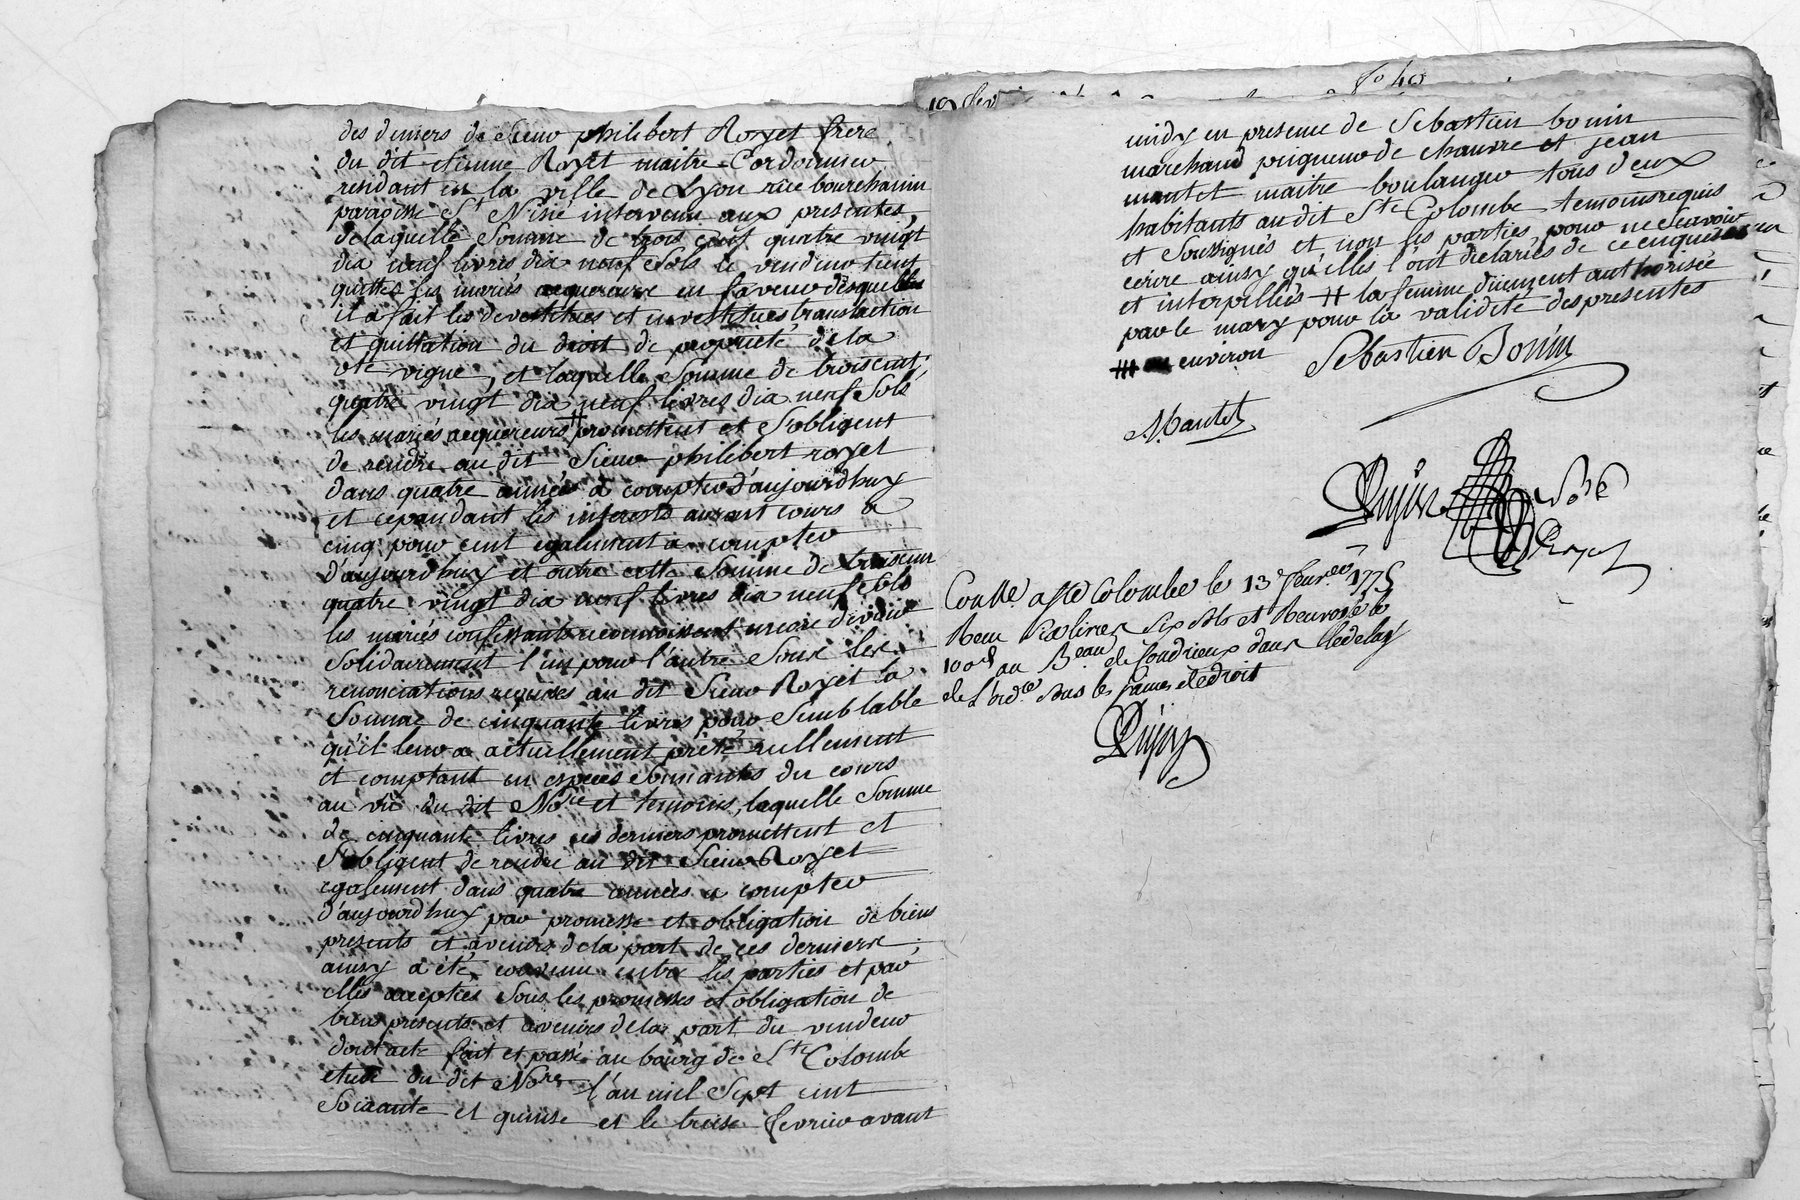 des deniers de Sieur philibert Royet frere
du dit etienne Royet maitre Cordonnier
residant en la ville de Lyon rüe bourchanin
paroisse St Nisié intervenu aux presentes,
de laquelle Somme de trois cent quatre vingt
dix neuf livres dix neuf Sols le vendeur tient
quittes les mariés acquereurs en faveur desquels
il a fait les devestitues et investitues translaction
et quittation du droit de propriété de la
dte vigne, et laquelle Somme de troiscent
quatre vingt dix neuf livres dix neuf Sols
les mariés acquereurs promettent et S'obligent
de rendre au dit Sieur philibert royet
dans quatre années a compter d'aujourdhuy
et cependant les interests auront cours a
cinq pour cent egalement a compter
d'aujourdhuy et outre cette Somme de troiscent
quatre vingt dix neuf livres dix neuf Sols
les mariés confessants reconnoissent encore devoir
Solidairement l'un pour l'autre Sous les
renonciations requises au dit Sieur Royet la
Somme de cinquante livres pour Semblable
qu'il leur a actuellement prété rellement
et comptant en especes Sonnantes du cours
au vû du dit Nore et temoins, laquelle Somme
de cinquante livres ces derniers promettent et
S'obligent de rendre au dit Sieur Royet
egalement dans quatre années a compter
d'aujourdhuy par promesse et obligation de biens
presents et avenirs de la part de ces derniers,
ainsy a été convenu entre les parties et par
elles acceptées Sous les promesses et obligation de
biens presents et avenirs de la part du vendeur
dont acte fait et passé au bourg de Ste Colombe
etude du dit Nore l'an mil Sept cent
Soixante et quinse et le treise fevrier avant
fo 40
19 fev
midy en presence de Sebastien bonin
marchand peigneur de chanvre et jean
mantet maitre boulanger tous deux
habitants au dit Ste Colombe temoins requis
et Soussignés et non les parties pour ne Scavoir
ecrire ainsy qu'elles l'ont declariés de ce enquises
et interpellées # la femme düement authorisée
par le mary pour la validité des presentes
environ
Sebastien Bonin
Mantet
Dujin
Nore
Royet
Conlle a Ste Colombe le 13 fevrier 1775
Recu Six livres Six Sols et Renvoié le
100d au Beau de Condrieux dans le delay
de l'ordce sous les peines de droit
Dujin